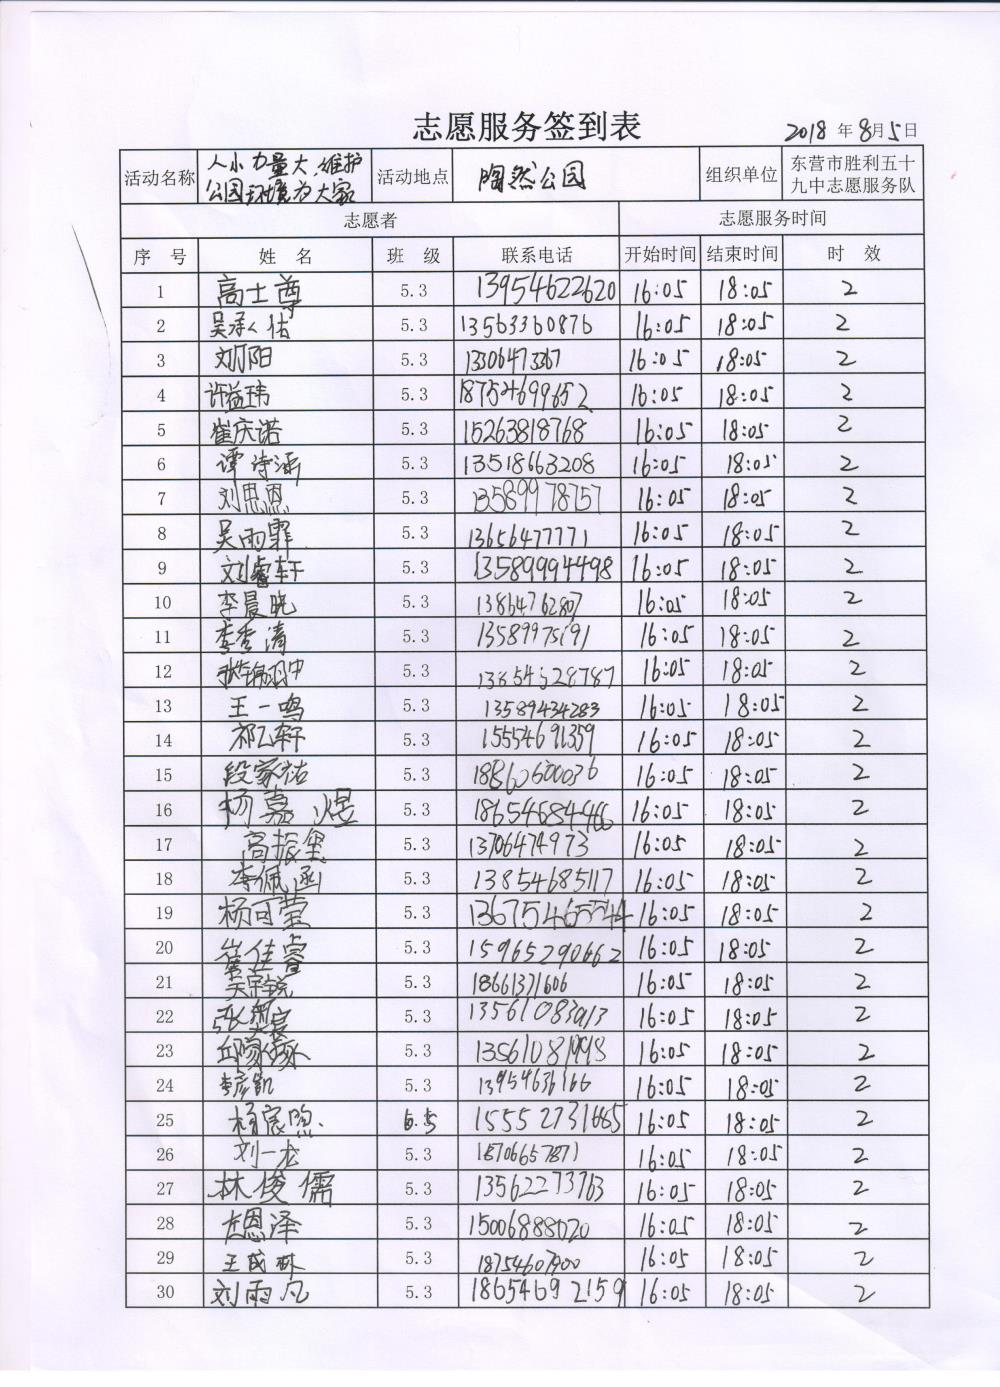 志愿服务签到表
2018年8月5日
活动名称 人小力量大,维护公园环境为大家 活动地点 陶然公园 组织单位 东营市胜利五十九中志愿服务队
志愿者 志愿服务时间
序 号 姓 名 班 级 联系电话 开始时间 结束时间 时 效
1 高士尊 5.3 13954622620 16:05 18:05 2
2 吴承佑 5.3 13563360876 16:05 18:05 2
3 5.3 16:05 18:05 2
4 许益玮 5.3 18754699652 16:05 18:05 2
5 崔庆诺 5.3 15263818768 16:05 18:05 2
6 谭诗涵 5.3 13518663208 16:05 18:05 2
7 刘思恩 5.3 13589978757 16:05 18:05 2
8 吴雨霏 5.3 13656477771 16:05 18:05 2
9 刘睿轩 5.3 13589994498 16:05 18:05 2
10 李晨晓 5.3 13864762807 16:05 18:05 2
11 李秀清 5.3 16:05 18:05 2
12 5.3 16:05 18:05 2
13 王一鸣 5.3 13589434283 16:05 18:05 2
14 祁乙轩 5.3 15554691359 16:05 18:05 2
15 段家祜 5.3 16:05 18:05 2
16 杨嘉煜 5.3 18654684466 16:05 18:05 2
17 高振玺 5.3 13706474973 16:05 18:05 2
18 李佩函 5.3 13854685117 16:05 18:05 2
19 杨可莹 5.3 16:05 18:05 2
20 崔佳睿 5.3 15965290662 16:05 18:05 2
21 吴宗锐 5.3 18661371606 16:05 18:05 2
22 5.3 13561083913 16:05 18:05 2
23 5.3 13561081998 16:05 18:05 2
24 李彦凯 5.3 13954636166 16:05 18:05 2
25 杨宸煦 15552731665 16:05 18:05 2
26 刘一龙 5.3 16:05 18:05 2
27 林俊儒 5.3 13562273763 16:05 18:05 2
28 左恩泽 5.3 15006888020 16:05 18:05 2
29 王成林 5.3 18754607900 16:05 18:05 2
30 刘雨凡 5.3 18654692159 16:05 18:05 2